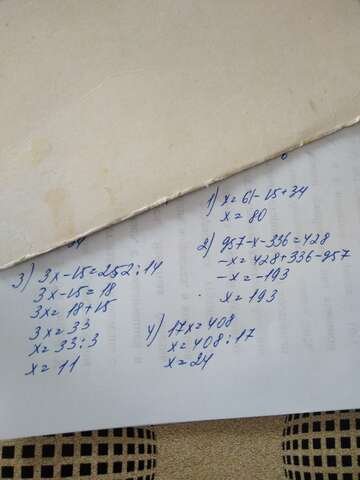 1) x = 61 - 15 + 34
x = 80
2) 957 - x - 336 = 428
-x = 428 + 336 - 957
-x = -193
x = 193
3) 3x - 15 = 252 : 14
3x - 15 = 18
3x = 18 + 15
3x = 33
x = 33 : 3
x = 11
4) 17x = 408
x = 408 : 17
x = 24